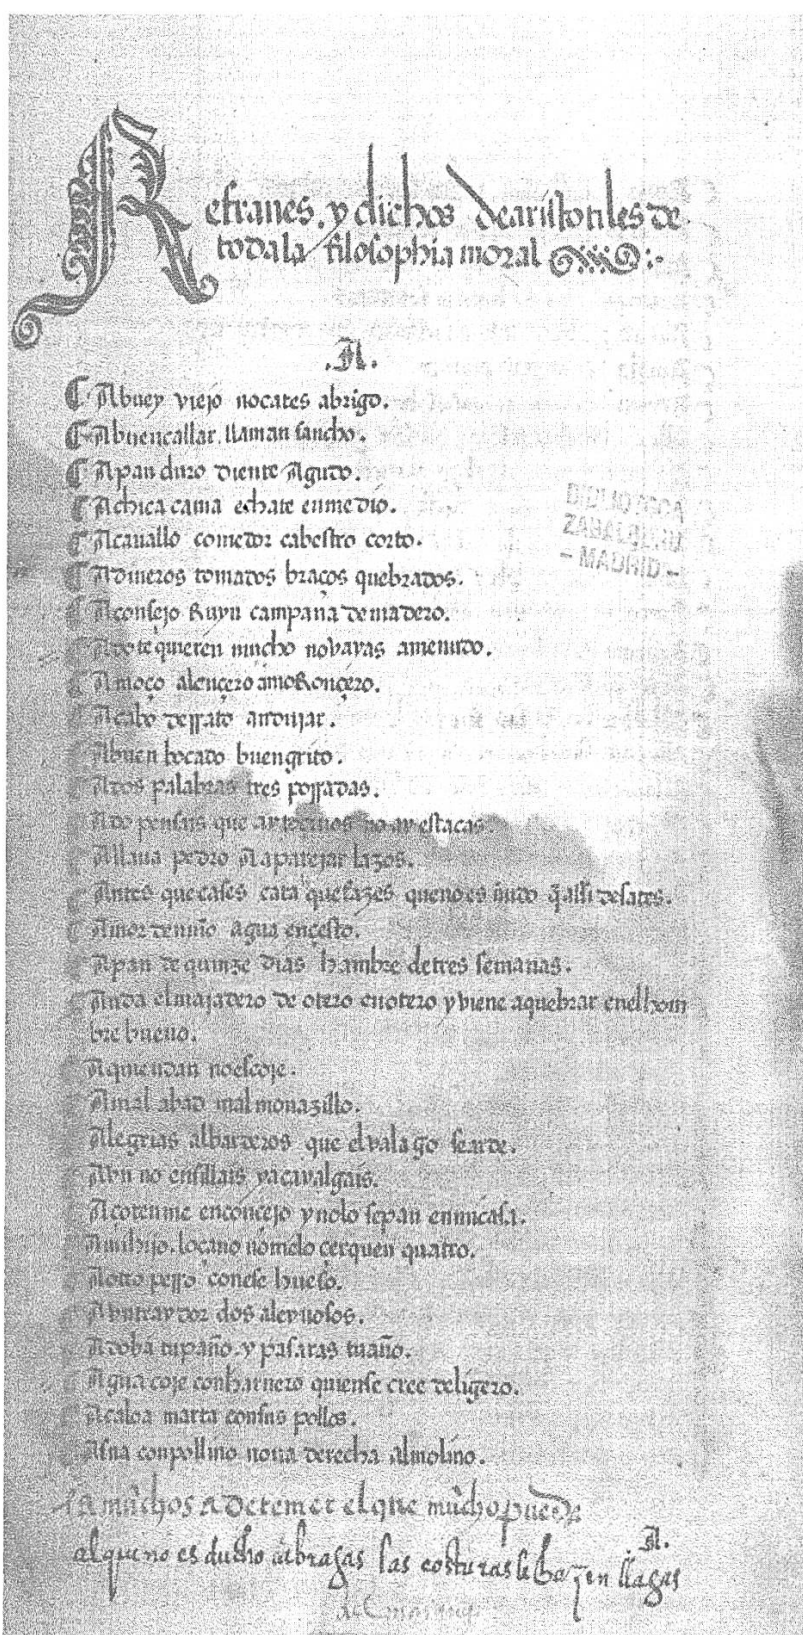 Refranes. y dichos dearistotiles de
toda la filosophia moral
.A.
Abuey viejo nocates abrigo.
Abuencallar. llaman sancho.
Apan duro diente Agudo.
Achica cama echate enmedio.
Acauallo comedor cabestro corto.
Adineros tomados braços quebrados.
Aconsejo Ruyn campana demadero.
Adote quieren mucho nobayas amenudo.
Amoço
Acabo derrato andujar.
Abuen bocado buengrito.
Ados palabras tres porradas.
Ado pensais que ay tocinos no ay estacas.
Allaua pedro Aaparejar lazos.
Antes quecases cata quefazes quenoes ñudo q̃assi desates.
Amor deniño agua encesto.
Apan dequinze dias hambre detres semanas.
Anda elmajadero de otero enotero y viene aquebrar enelhom
bre bueno.
Aquiendan noescoje.
Amal abad mal monazillo.
Alegrias albarderos que elvalago searde.
Avn no ensillais yacavalgais.
Açotenme enconcejo ynolo sepan enmicasa.
Amihijo. loçano nomelo cerquen quatro.
Aotro perro conese hueso.
Avntraydor dos aleuosos.
Adoba tupaño. y pasaras tuaño.
Agua coje conharnero quiense cree deligero.
Acaloa marta consus pollos.
Asna conpollino noua derecha almolino.
A muchos A detemer elque mucho puede
.A.
alqueno es ducho abragas las costuras le hazen llagas
BIBLIOTECA
ZABALBURU
- MADRID -